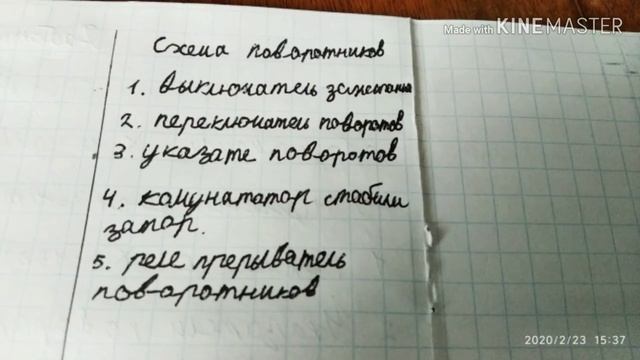 Made with KINEMASTER
Схема поворотников
1. выключатель зажигания
2. переключатель поворотов
3. указате поворотов
4. комунататор стабили
затор.
5. реле прерыватель
поворотников
2020/2/23 15:37